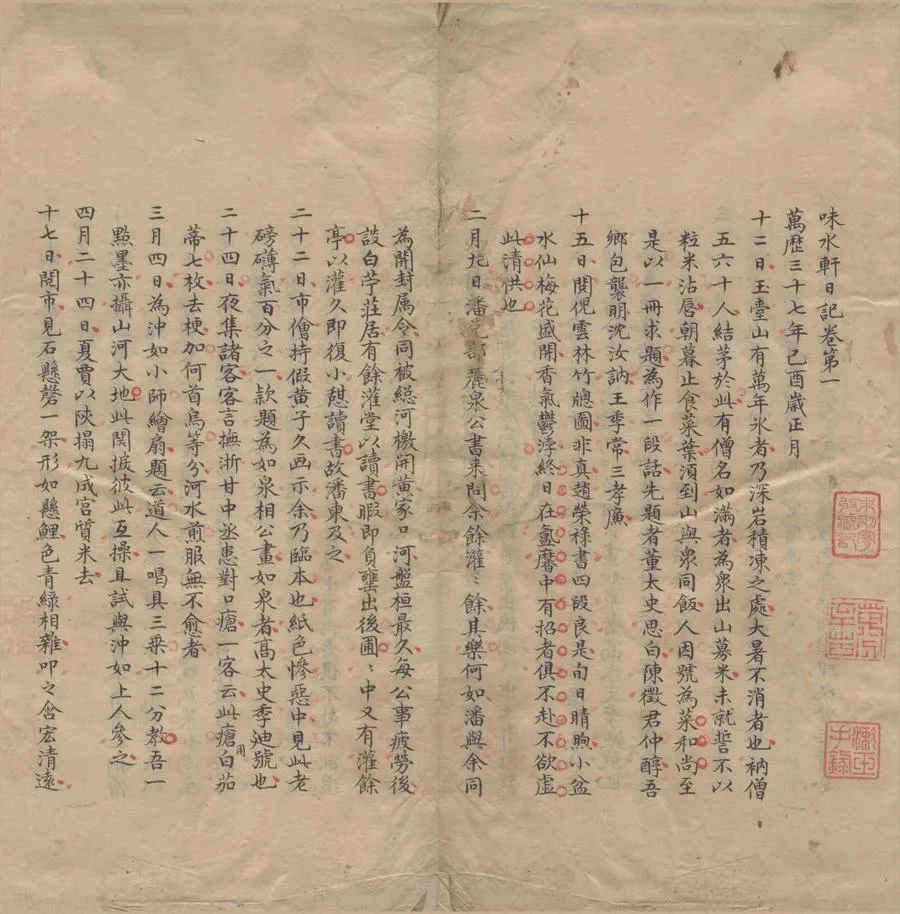 味水軒日記卷第一
萬歷三十七年己酉歲正月
十二日玉臺山有萬年氷者乃深岩積凍之處大暑不消者也衲僧
五六十人結茅於此有僧名如滿者為衆出山募米未就誓不以
粒米沾唇朝暮止食菜葉湏到山與衆同飯人因號為菜和尚至
是以一冊求題為作一段話先題者董太史思白陳徵君仲醇吾
鄉包襲明沈汝訥王季常三孝廉
十五日閱倪雲林竹牕圖非真趙榮祿書四段良是旬日晴煦小盆
水仙梅花盛開香氣鬱浡終日在氤麐中有招者俱不赴不欲虛
此清供也
二月九日潘 部麓泉公書來問余餘灌〻餘其樂何如潘與余同
為開封属令同被總河檄開黄家口河盤桓最久每公事疲勞後
設白苧莊居有餘灌堂以讀書暇即負甕出後圃〻中又有灌餘
亭以灌久即復小憇讀書故潘柬及之
二十二日市儈持假黄子久画示余乃臨本也紙色慘惡中見此老
磅礴氣百分之一款題為如泉相公畫如泉者髙太史季迪號也
二十四日夜集諸客客言撫浙甘中丞患對口瘡一客云此瘡用白茄
蒂七枚去梗加何首烏等分河水煎服無不愈者
三月四日為沖如小師繪扇題云道人一喝具三乗十二分教吾一
㸃墨亦攝山河大地此関捩彼此互操且試與沖如上人參之
四月二十四日夏賈以陜搨九成宫質米去
十七日閱市見石懸磬一架形如懸鯉色青緑相雜叩之含宏清遠